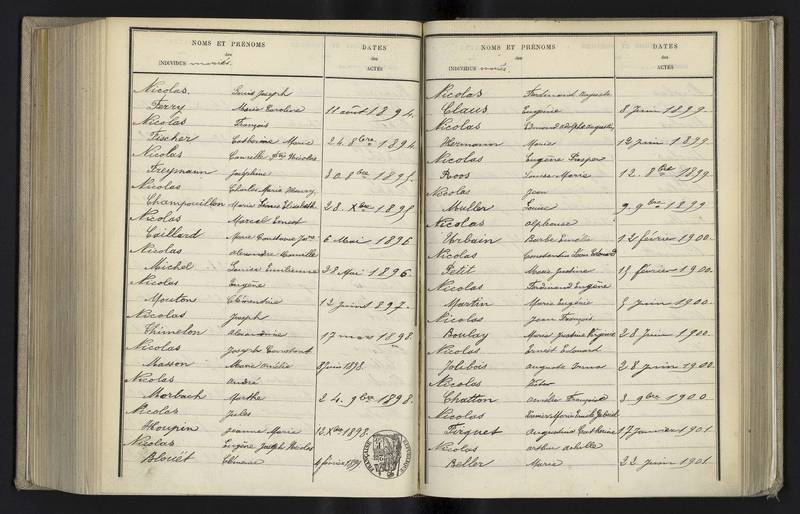 NOMS ET PRÉNOMS
des
INDIVIDUS mariés.
DATES
des
ACTES
Nicolas Louis Joseph
Ferry Marie Caroline 11 août 1894.
Nicolas François
Fischer Catherine Marie 24. 8bre 1894
Nicolas Camille Nicolas
Freymann Joséphine 30 8bre 1895.
Nicolas Charles Marie
Champouillon Marie Elisabeth 28. Xbre 1895
Nicolas Marcel Ernest
Caillard Marie Constance 6 Mai 1896
Nicolas Alexandre Camille
Michel Louise Emilienne 28 Mai 1896.
Nicolas Eugène
Mouton Clémentine 12 juin 1897.
Nicolas Joseph
Thimelon Alexandrine 17 mars 1898.
Nicolas Joseph Constant
Masson Marie Amélie 8 juin 1898.
Nicolas André
Morbach Marthe 24. 9bre 1898.
Nicolas Jules
Houpin Jeanne Marie 12. Xbre 1898.
Nicolas Eugène Joseph Nicolas
Blouët Clémence 4 février 1899
NOMS ET PRÉNOMS
des
INDIVIDUS mariés.
DATES
des
ACTES
Nicolas Ferdinand Auguste
Claus Eugénie 8 Juin 1899.
Nicolas Edmond Adolphe
Hermann Marie 12 juin 1899.
Nicolas Eugène Prosper
Roos Louise Marie 12. 8bre 1899
Nicolas Jean
Muller Louise 9. 9bre 1899
Nicolas Alphonse
Urbain Barbe 12 février 1900.
Nicolas Constantin Léon Edouard
Petit Marie Justine 15 février 1900.
Nicolas Ferdinand Eugène
Martin Marie Eugénie 5 juin 1900.
Nicolas Jean François
Boulay Marie Justine 28 Juin 1900.
Nicolas Ernest Edouard
Jolibois Auguste 28 juin 1900.
Nicolas Victor
Chatton Amélie Françoise 3 9bre 1900.
Nicolas Marie Emile Gabriel
Firquet Augustine Catherine 17 Janvier 1901
Nicolas Arthur Achille
Beller Marie 22 Juin 1901.